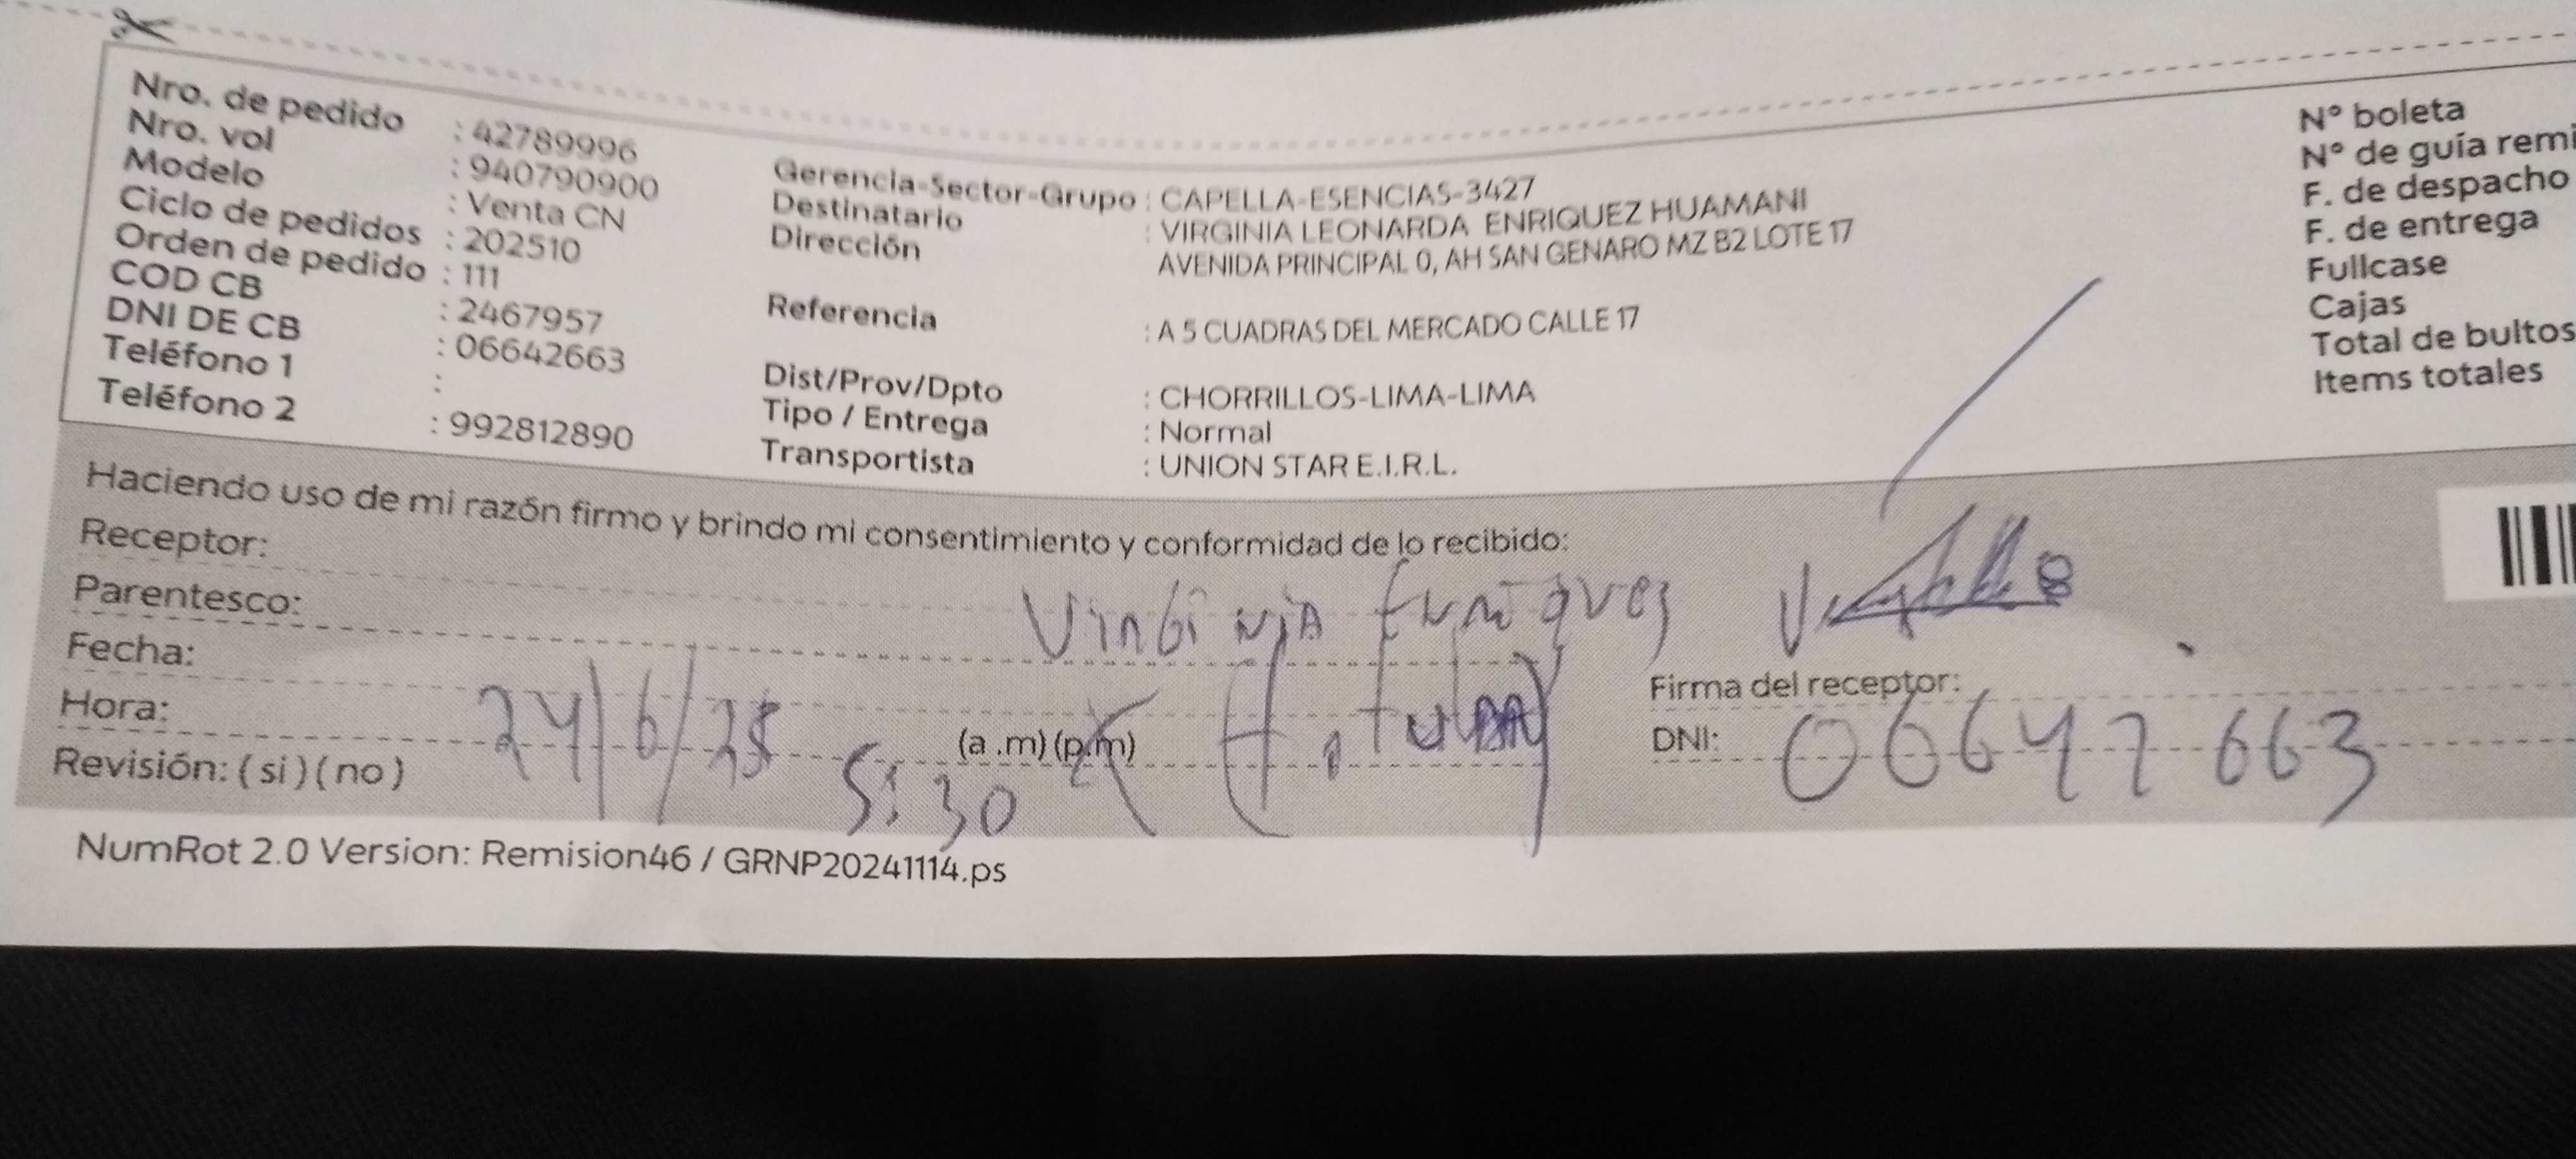 Nro. de pedido : 42789996
Nro. vol : 940790900
Modelo : Venta CN
Ciclo de pedidos : 202510
Orden de pedido : 111
COD CB : 2467957
DNI DE CB : 06642663
Teléfono 1 :
Teléfono 2 : 992812890
Gerencia-Sector-Grupo : CAPELLA-ESENCIAS-3427
Destinatario : VIRGINIA LEONARDA ENRIQUEZ HUAMANI
Dirección AVENIDA PRINCIPAL 0, AH SAN GENARO MZ B2 LOTE 17
Referencia : A 5 CUADRAS DEL MERCADO CALLE 17
Dist/Prov/Dpto : CHORRILLOS-LIMA-LIMA
Tipo / Entrega : Normal
Transportista : UNION STAR E.I.R.L.
N° boleta
N° de guía remi
F. de despacho
F. de entrega
Fullcase
Cajas
Total de bultos
Items totales
Haciendo uso de mi razón firmo y brindo mi consentimiento y conformidad de lo recibido:
Receptor:
Parentesco:
Fecha: 24/6/25
Hora: 5:30 (a .m) (p.m)
Revisión: ( si ) ( no )
Firma del receptor:
DNI: 06642663
NumRot 2.0 Version: Remision46 / GRNP20241114.ps